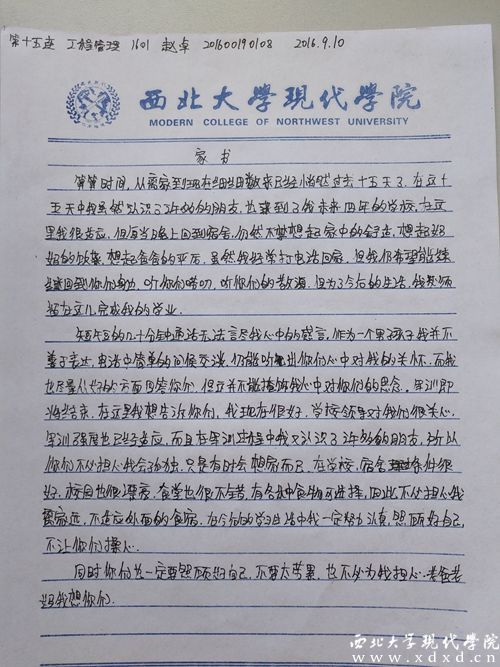 第十五连 工程管理 1601 赵卓 201600190108 2016.9.10
西北大學現代學院
MODERN COLLEGE OF NORTHWEST UNIVERSITY
家书
算算时间,从离家到现在细细数来已经悄然过去十五天了。在这十
五天中我虽然认识了许多的朋友,也来到了我未来四年的学校,在这
里我很适应,但每当晚上回到宿舍,仍然不禁想起家中的,想起妈
妈的饭菜,想起爸爸的。虽然我经常打电话回家,但我仍希望能继
续回到你们身边,听你们唠叨,听你们的教诲。但为了今后的生活,我必须
留在这儿完成我的学业。
短短的几十分钟电话无法言尽我心中的感言,作为一个男孩子我并不
善于表达,电话中简单的问候交流,仍能听出你们心中对我的关怀,而我
也尽量以好的方面回答你们,但这并不能掩饰我心中对你们的思念。军训即
将结束,在这里我想告诉你们,我现在很好,学校领导对我们很关心,
军训强度也已经适应,而且在军训过程中我又认识了许多的朋友,所以
你们不必担心我会孤独,只是有时会想家而已。在学校,宿舍条件很
好,校园也很漂亮,食堂也很不错,有各种食物可选择,因此不必担心我
离家远,不适应外面的食宿。在今后的学习生活中我一定努力认真,照顾好自己,
不让你们操心。
同时你们也一定要照顾好自己,不要太劳累,也不必为我担心。老爸老
妈我想你们。
西北大学现代学院
www.xdxd.cn